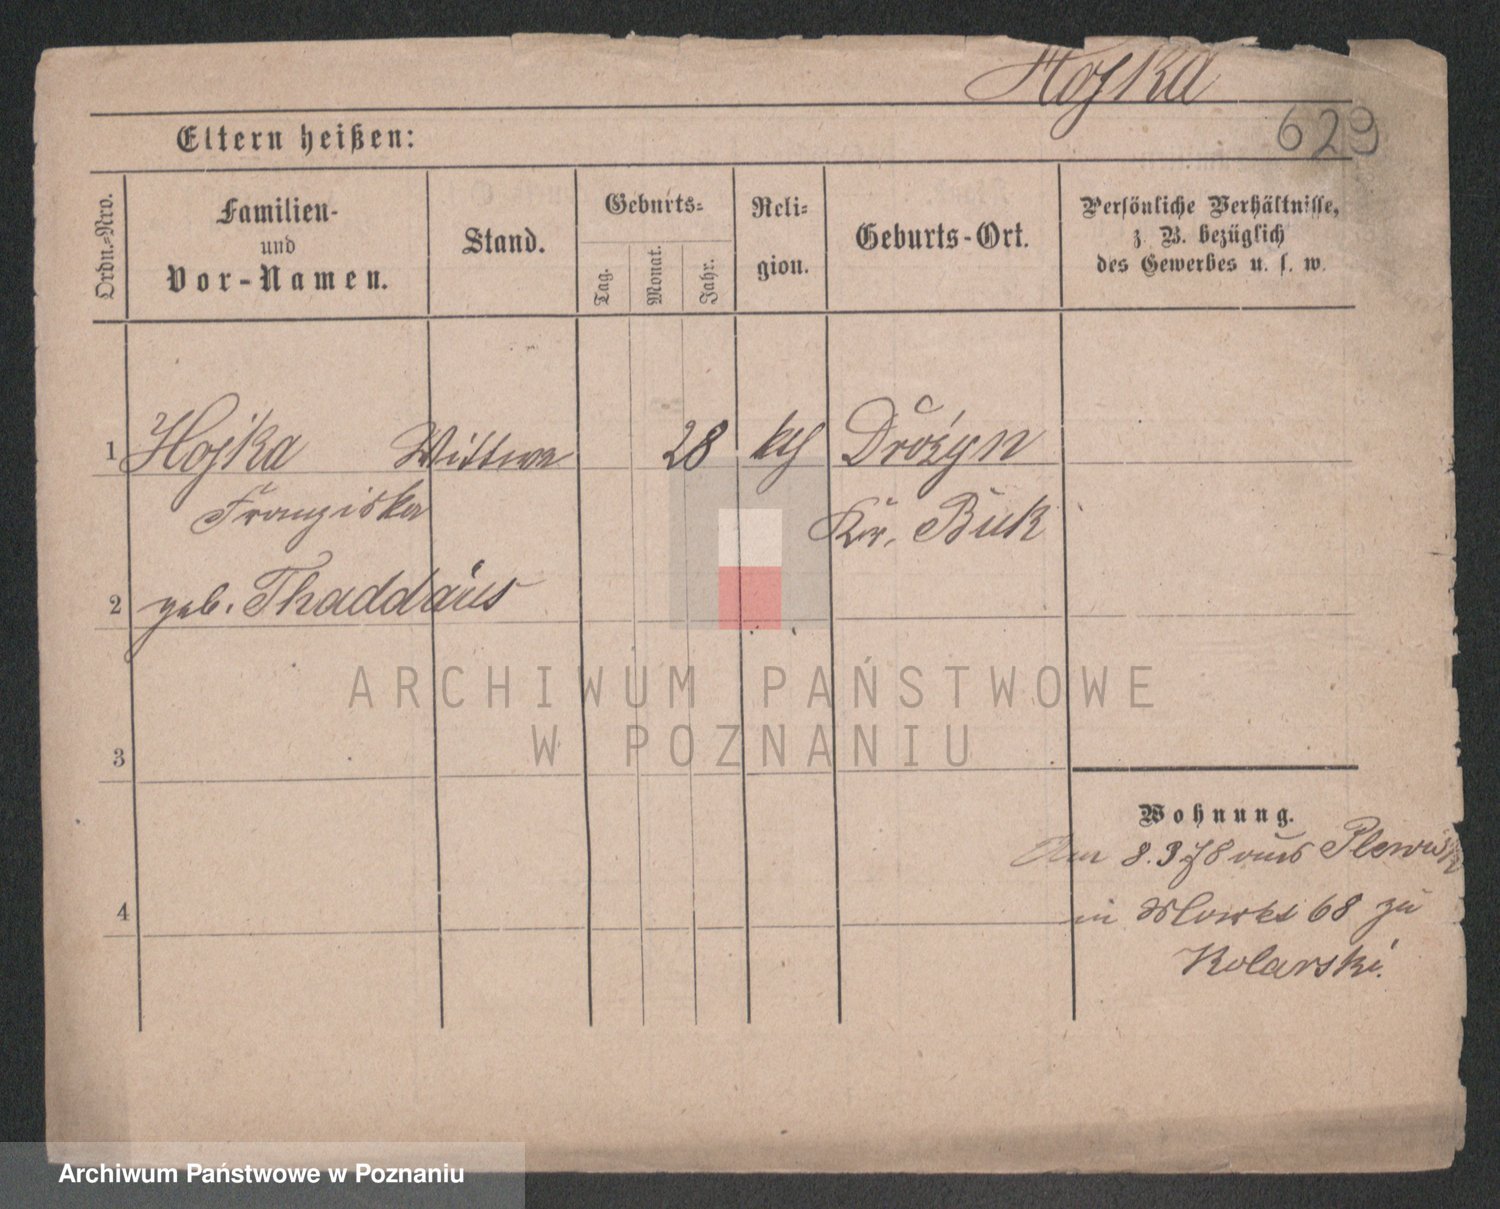 Hojka
629
Eltern heißen:
Ordn.-Nro.
Familien-
und
Vor-Namen.
Stand.
Geburts-
Tag.
Monat.
Jahr.
Reli-
gion.
Geburts-Ort.
Persönliche Verhältnisse,
z. B. bezüglich
des Gewerbes u. s. w.
1 Hojka Wittwe 28 kth Drożyn
Franziska Kr. Buk
2 geb. Thaddäus
ARCHIWUM PAŃSTWOWE
W POZNANIU
3
Wohnung.
Am 8.3 78 aus Plewisk
4 in 68 zu
Kolarski.
Archiwum Państwowe w Poznaniu